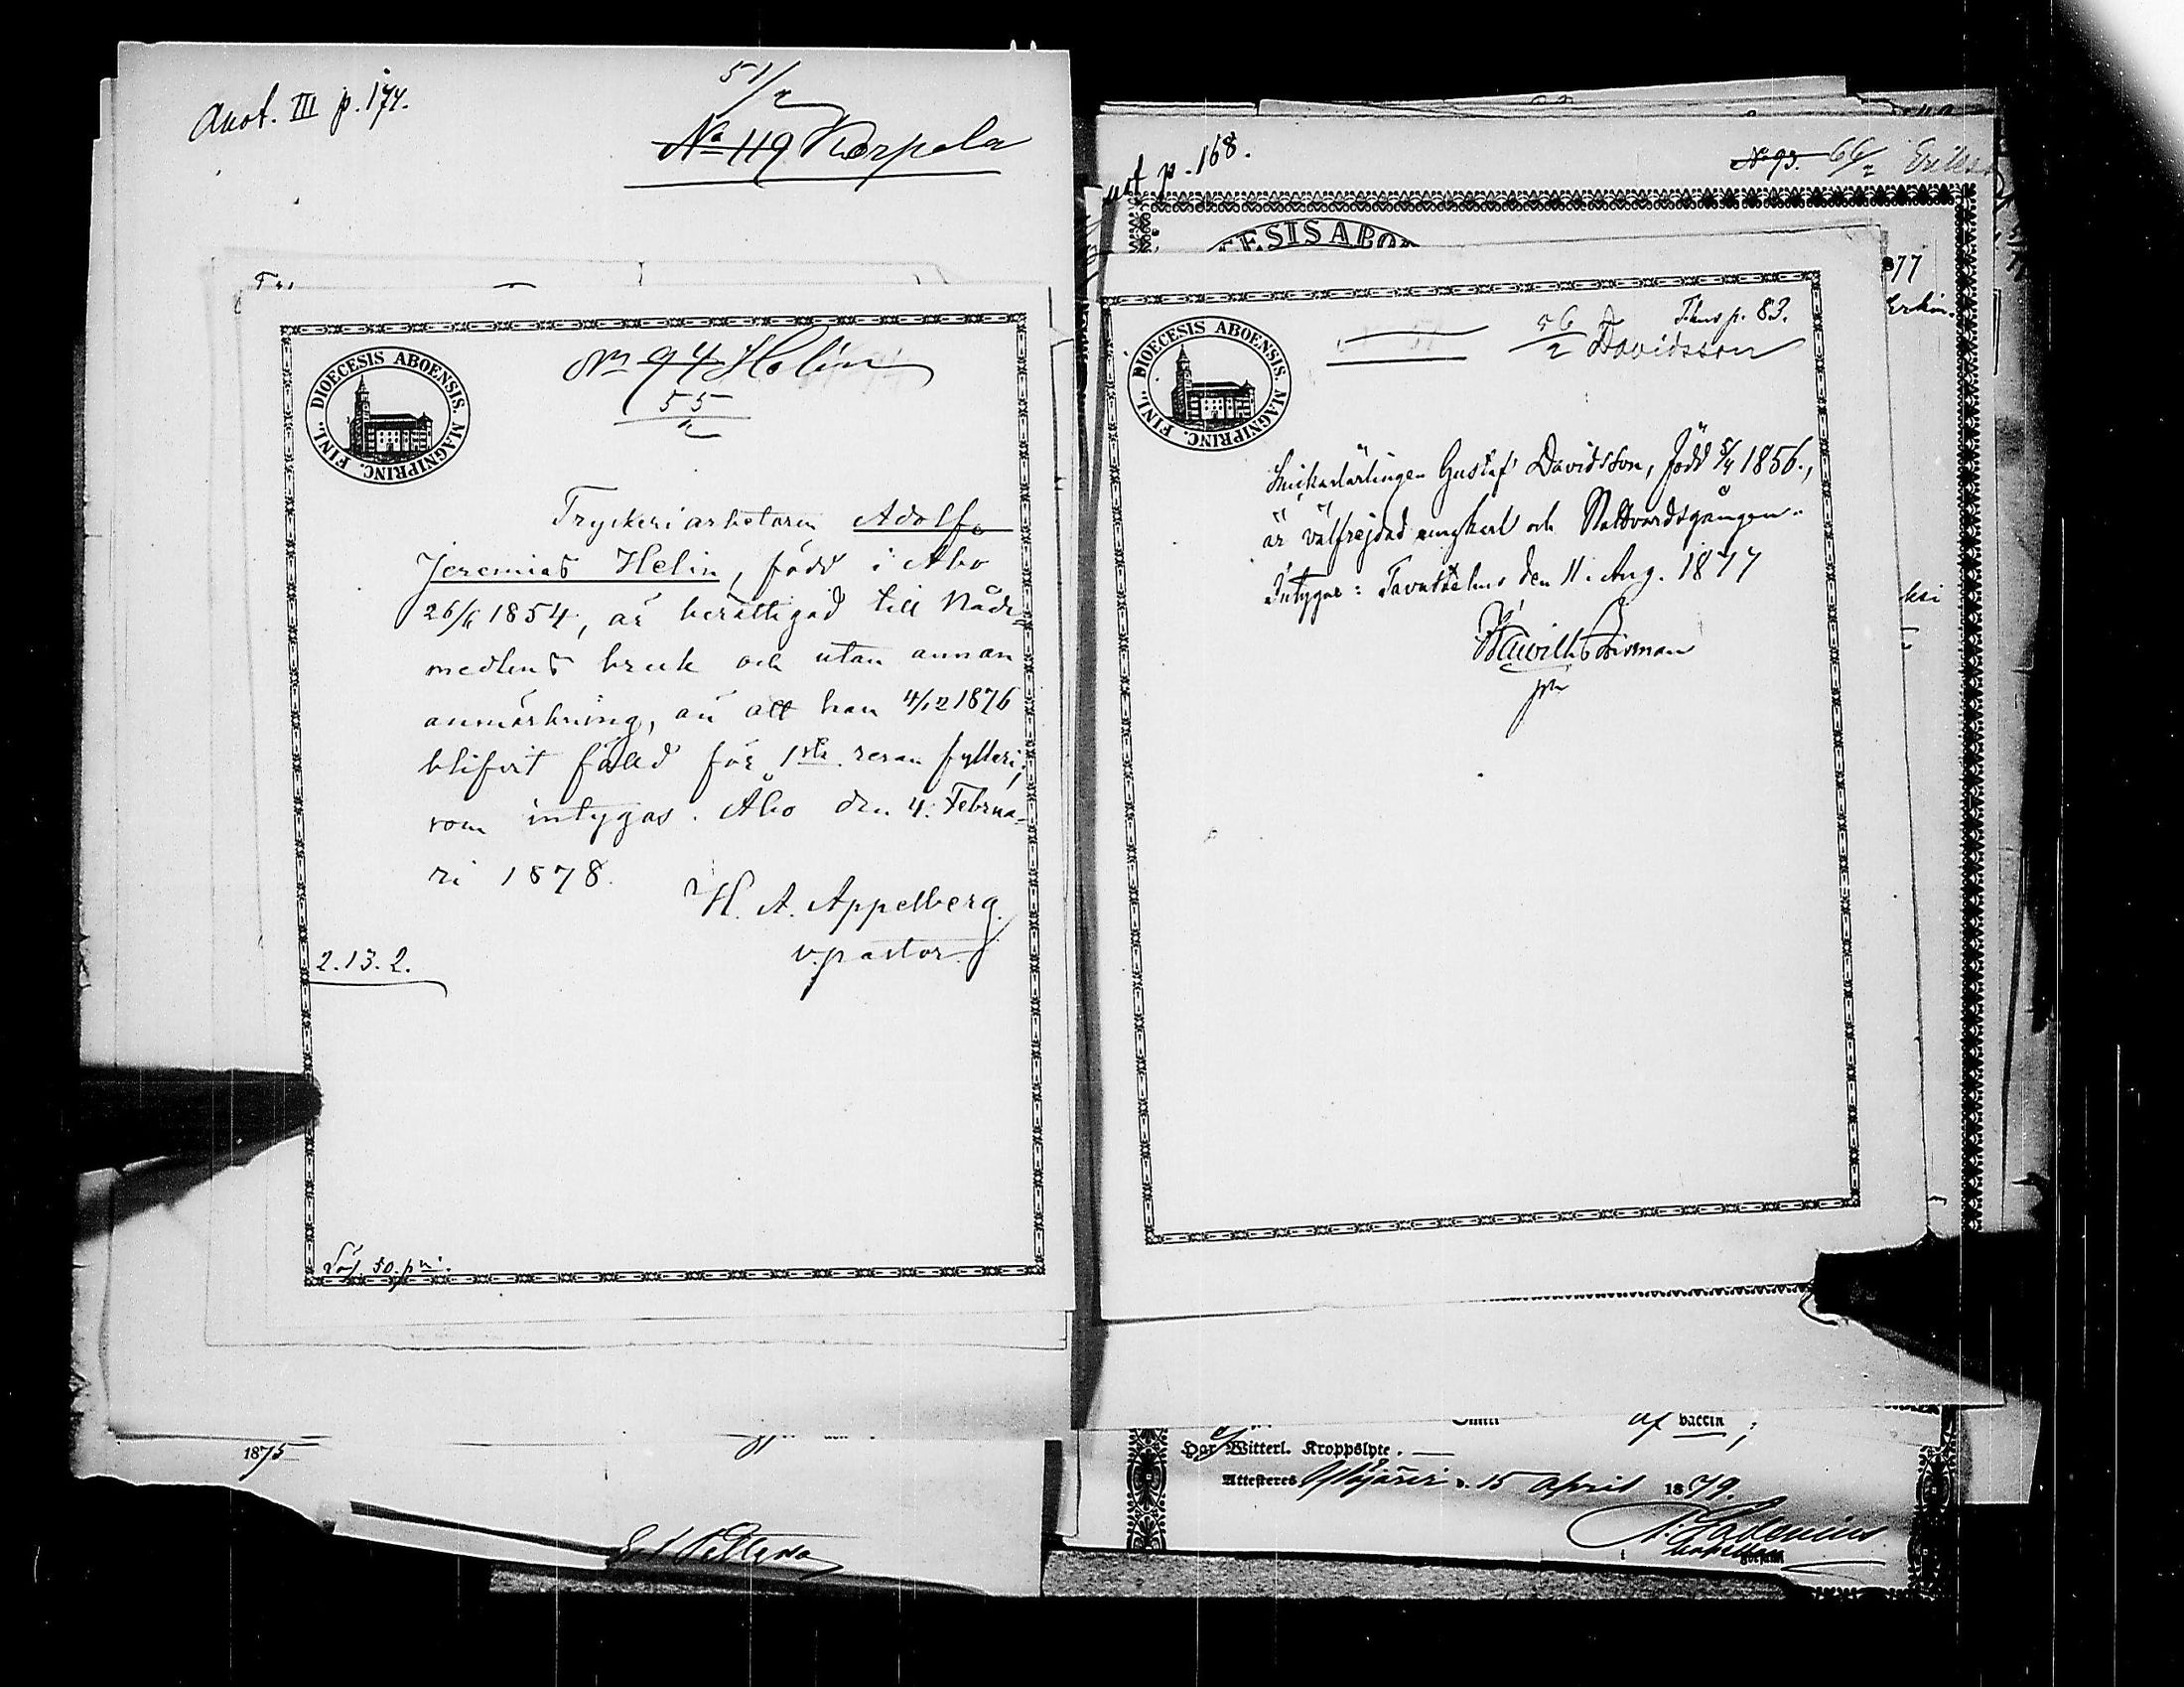 Anot. III p. 174.
51/2
No 119 Korpela
DIOECESIS ABOENSIS. MAGNIPRINC. FINL.
No 94 Helin
55/2
Tryckeriarbetaren Adolf
Jeremias Helin, född i Åbo
26/6 1854, är berättigad till Nåde-
medlens bruk och utan annan
anmärkning, än att han 4/12 1876
blifvit fälld för 1sta resan fylleri;
som intygas. Åbo den 4. Februa-
ri 1878.
H. A. Appelberg.
v. pastor.
2.13.2.
Lös. 50. pni.
1875
p. 168.
No 93. 66/2
CESIS ABO
77
T.hus p. 83.
56/2 Davidsson
DIOECESIS ABOENSIS. MAGNIPRINC. FINL.
Snickarlärlingen Gustaf Davidsson, född 5/4 1856.,
är välfrejdad ungkarl och Nattvardsgången.
Intygar: Tavastehus den 11. Aug. 1877
af vaccin;
Har Witterl. Kroppslyte. —
Attesteres d. 15 April 1879.